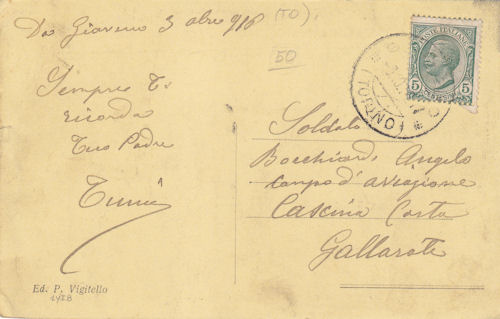 Da Giaveno 3 Obre 916 (TO).
50
Sempre ti
ricorda
tuo Padre
POSTE ITALIANE
5 5
(TORINO)
Soldato
Bocchiardi Angelo
campo d'aviazione
Cascina Costa
Gallarate
Ed. P. Vigitello
1918